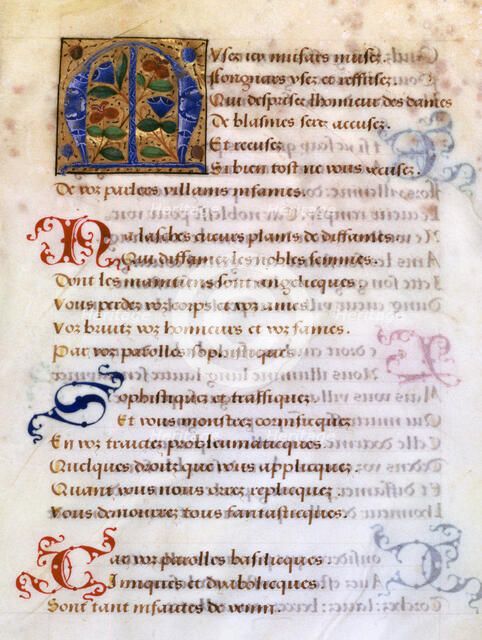 Musez icy musars musez
Longnars usez et reffusez
Qui desprisez lhonneur des dames
De blasmes serez accusez.
Et recusez
Si bien tost ne vous excusez.
De voz parlers villains infames.
Malasches cueurs plains de diffames
Qui diffamez les nobles femmes.
Dont les maintiens sont angelicques
Vous perdez voz corps et voz ames.
Voz bruitz voz honneurs et voz fames.
Par voz parolles sophisticques.
Sophistiquez et traffiquez
Et vous monstrez cornificquez
En voz traictez probleumaticques.
Quelques droitz que vous applicquez
Quant vous nous orrez replicquez
Vous demourrez tous fantasticques.
Car voz parolles basilicques
Iniques et dyabolicques
Sont tant infaictes de venin.